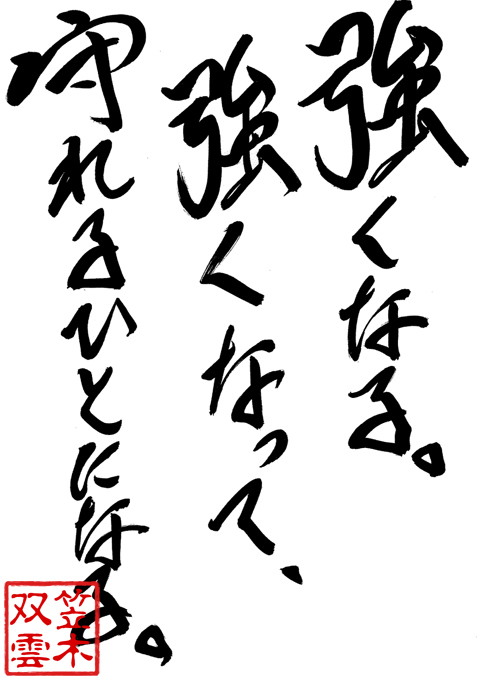 強くなる。
強くなって、
守れるひとになる。
笠木
双雲